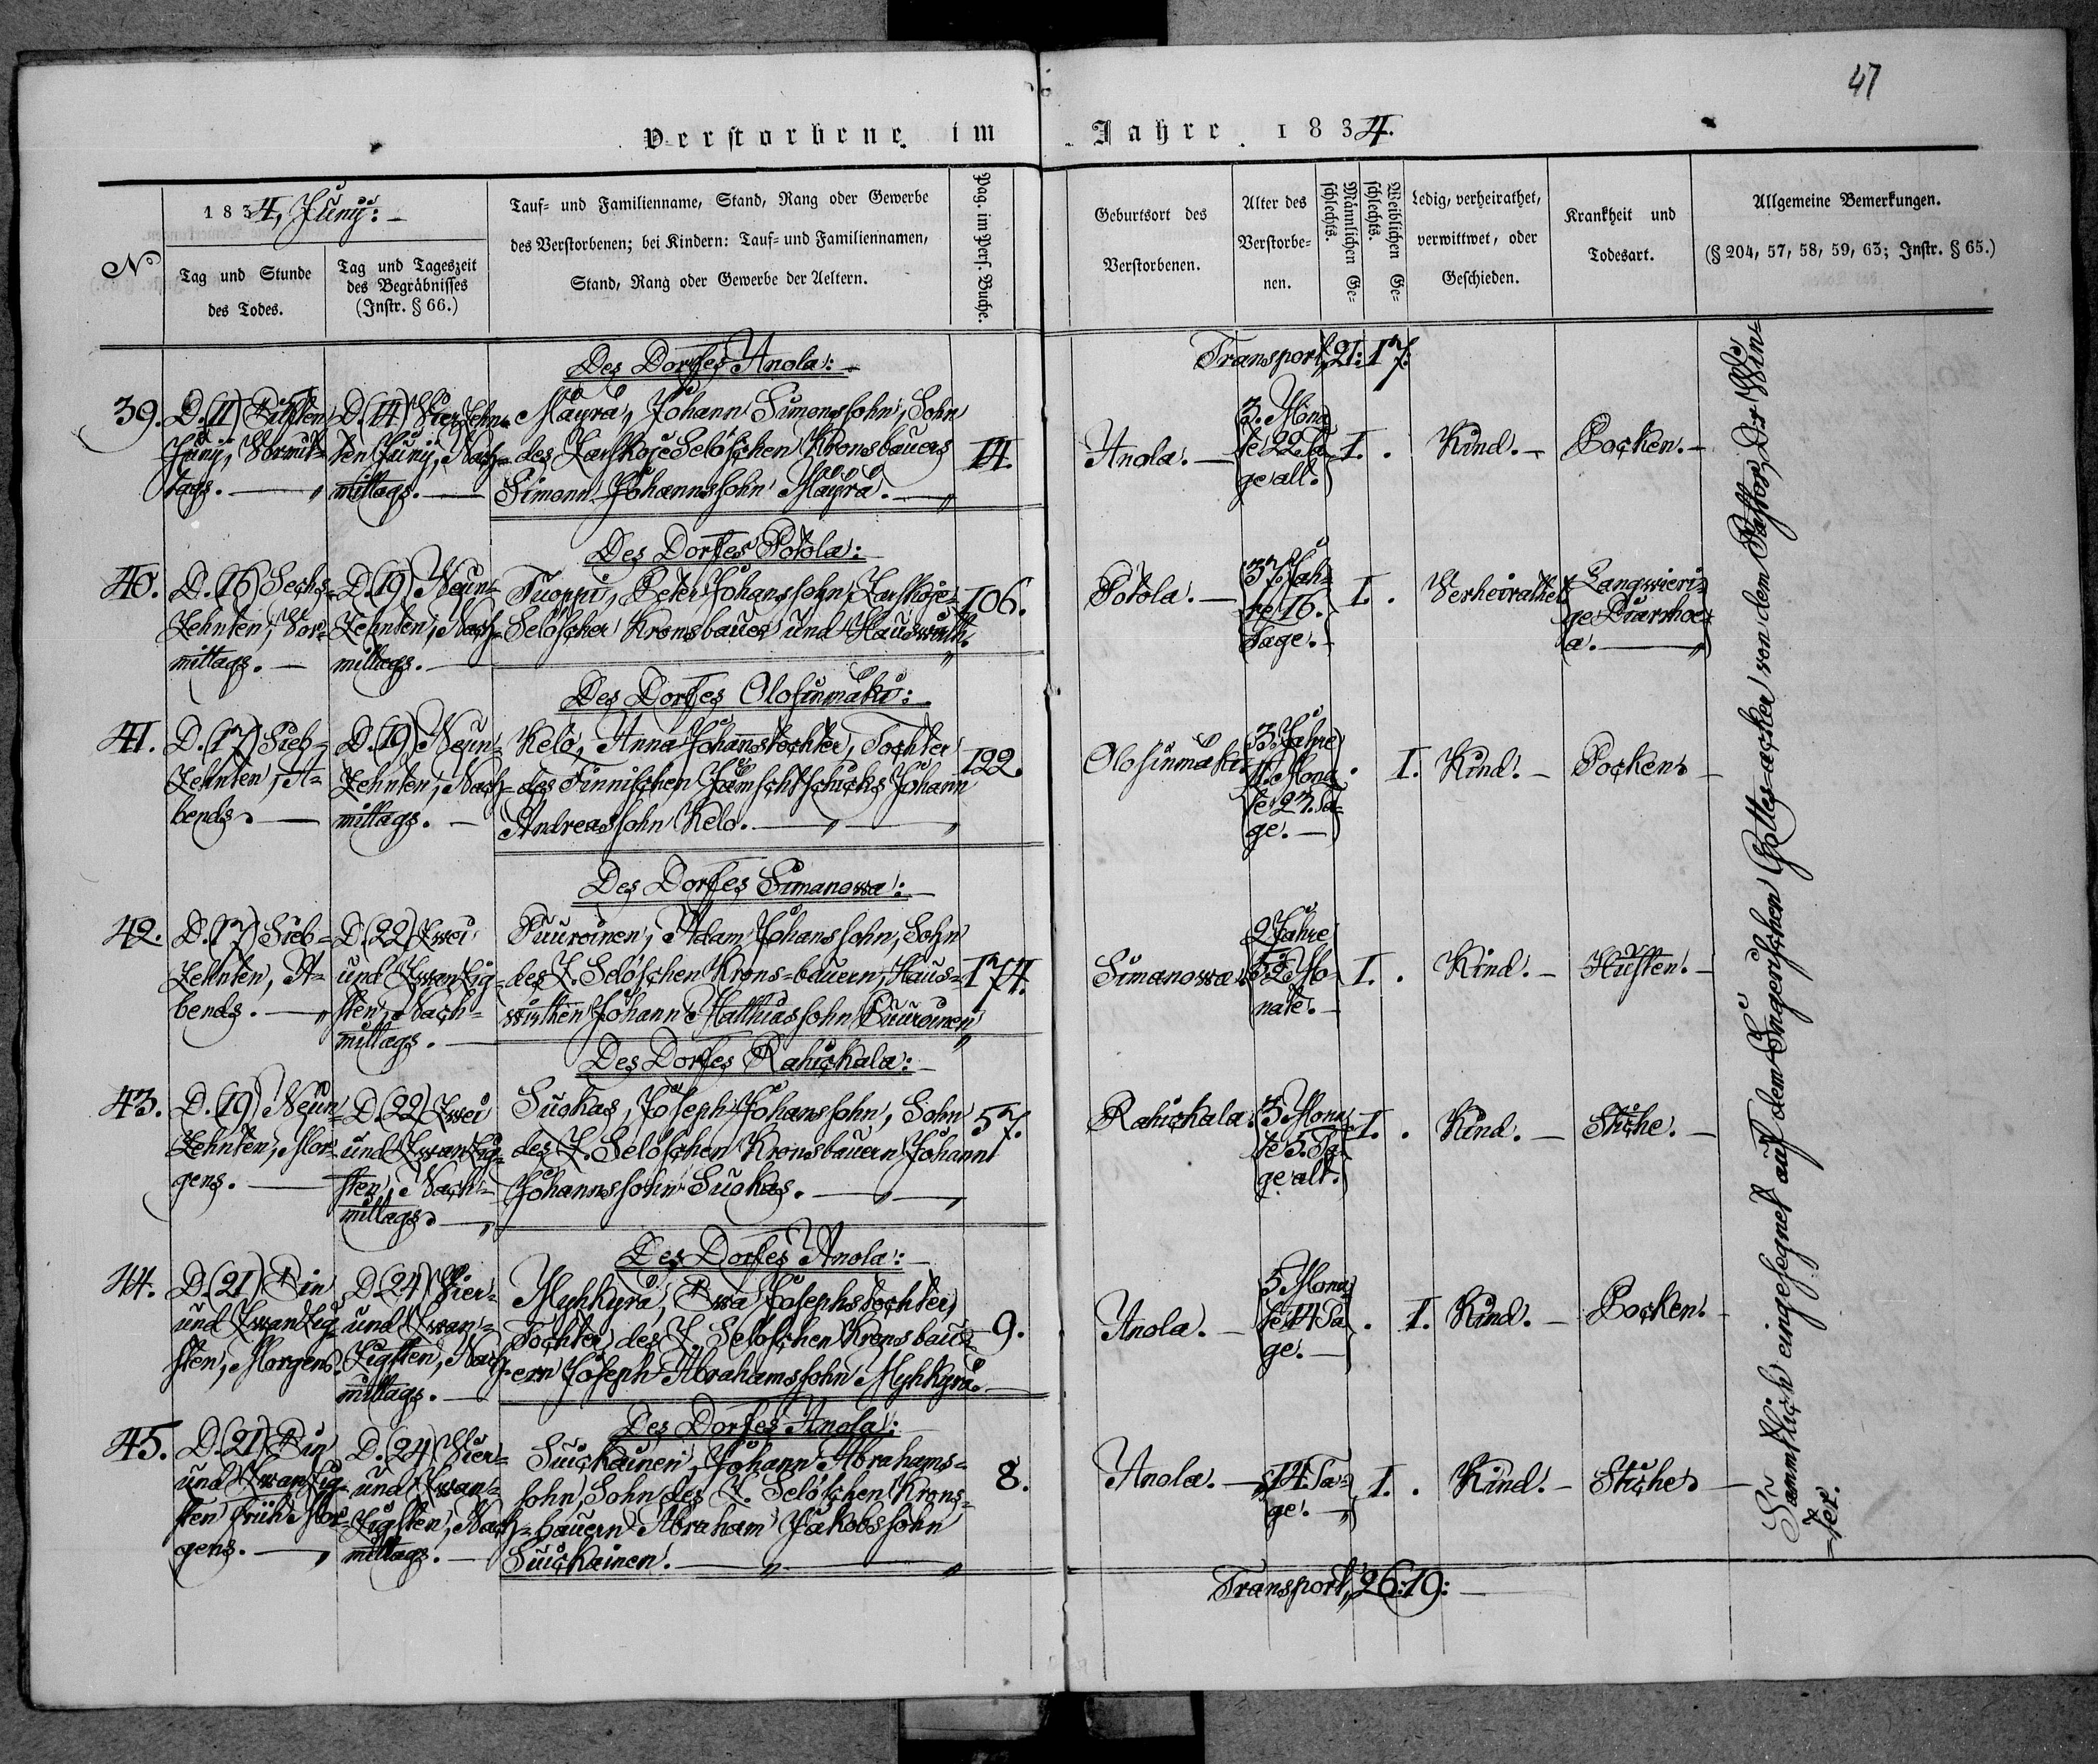 47
Verstorbene im Jahre 1834.
No
1834, Juny: –
Tag und Stunde
des Todes.
Tag und Tageszeit
des Begräbnisses
(Instr. § 66.)
Tauf- und Familienname, Stand, Rang oder Gewerbe
des Verstorbenen; bei Kindern: Tauf- und Familiennamen,
Stand, Rang oder Gewerbe der Aeltern.
Pag. im Pers. Buche.
Geburtsort des
Verstorbenen.
Alter des
Verstorbe-
nen.
Männlichen Ge-
schlechts.
Weiblichen Ge-
schlechts.
Ledig, verheirathet,
verwittwet, oder
Geschieden.
Krankheit und
Todesart.
Allgemeine Bemerkungen.
(§ 204, 57, 58, 59, 63; Instr. § 65.)
Transport, 21: 17:
Des Dorfes Anola: –
39.
D. (11) Eilften
Juny, Vormit-
tags. –
D. (14) Vierzehn-
ten Juny, Nach-
mittags. –
Mäyrä, Johann Simonssohn, Sohn
des Zarskoje Selöschen Kronsbauers
Simonn Johannssohn Mäyrä. –
14.
Anola. –
3. Mona-
te 22 Ta-
ge alt.
I. .
Kind. –
Pocken. –
Des Dorfes Potola:
40.
D. 16) Sechs-
zehnten, Vor-
mittags. –
D. (19) Neun-
zehnten, Nach-
mittags. –
Tuoppi, Peter Johanssohn, Zarskoje-
Selöscher Kronsbauer und Hauswirth.
106.
Potola. –
37. Jah-
re 16.
Tage. –
I. .
Verheirathet
Langwieri-
ge Diarrhoe-
a. –
Des Dorfes Olosinmäki:
41.
D. (17) Sieb-
zehnten, A-
bends. –
D. (19) Neun-
zehnten, Nach-
mittags. –
Kelo, Anna Johannstochter, Tochter
des Finnischen Jämschtschicks Johann
Andreassohn Kelo. –
122.
Olosinmäki.
3. Jahre
11. Mona-
te 27. Ta-
ge. –
. I.
Kind. –
Pocken. –
Des Dorfes Simanowa: –
42.
D. (17) Sieb-
zehnten, A-
bends. –
D. (22) Zwei
und Zwanzig-
sten, Nach-
mittags. –
Puuroinen, Adam Johanssohn, Sohn
des Z. Selöschen Krons-bauern, Haus-
wirthen Johann Matthiassohn Puuroinen
174.
Simanowa.
2 Jahre
Mo-
nate. –
I. .
Kind. –
Husten. –
Des Dorfes Rahickala: –
43.
D. (19) Neun-
zehnten, Mor-
gens. –
D. (22) Zwei
und Zwanzig-
sten, Nach-
mittags. –
Suokas, Joseph Johanssohn, Sohn
des Z. Selöschen Kronsbauern Johann
Johannssohn Suokas. –
57.
Rahickala.
3 Mona-
te 5. Ta-
ge alt.
I. .
Kind. –
Stiche. –
Des Dorfes Anola: –
44.
D. (21) Ein
und Zwanzig-
sten, Morgens.
D. 24) Vier-
und Zwan-
zigsten, Nach-
mittags. –
Myhkyrä, Ewa Josephstochter,
Tochter des Z. Selöschen Kronsbau-
ern Joseph Abrahamssohn Myhkyrä. –
9.
Anola. –
5 Mona-
te 14 Ta-
ge. –
. I.
Kind. –
Pocken. –
Des Dorfes Anola:
45.
D. (21) Ein
und Zwanzig-
sten früh Mor-
gens. –
D. 24) Vier-
und Zwan-
zigsten, Nach-
mittags. –
Suickainen, Johann Abrahams-
sohn, Sohn des Z. Selöschen Krons-
bauern Abraham Jakobssohn
Suickainen. –
8.
Anola. –
14. Ta-
ge. –
I. .
Kind. –
Stiche. –
Transport, 26: 19: –
Sämmtlich eingesegnet auf dem Ingerischen Gottes-acker von dem Pastor, Dr. Win-
ter.